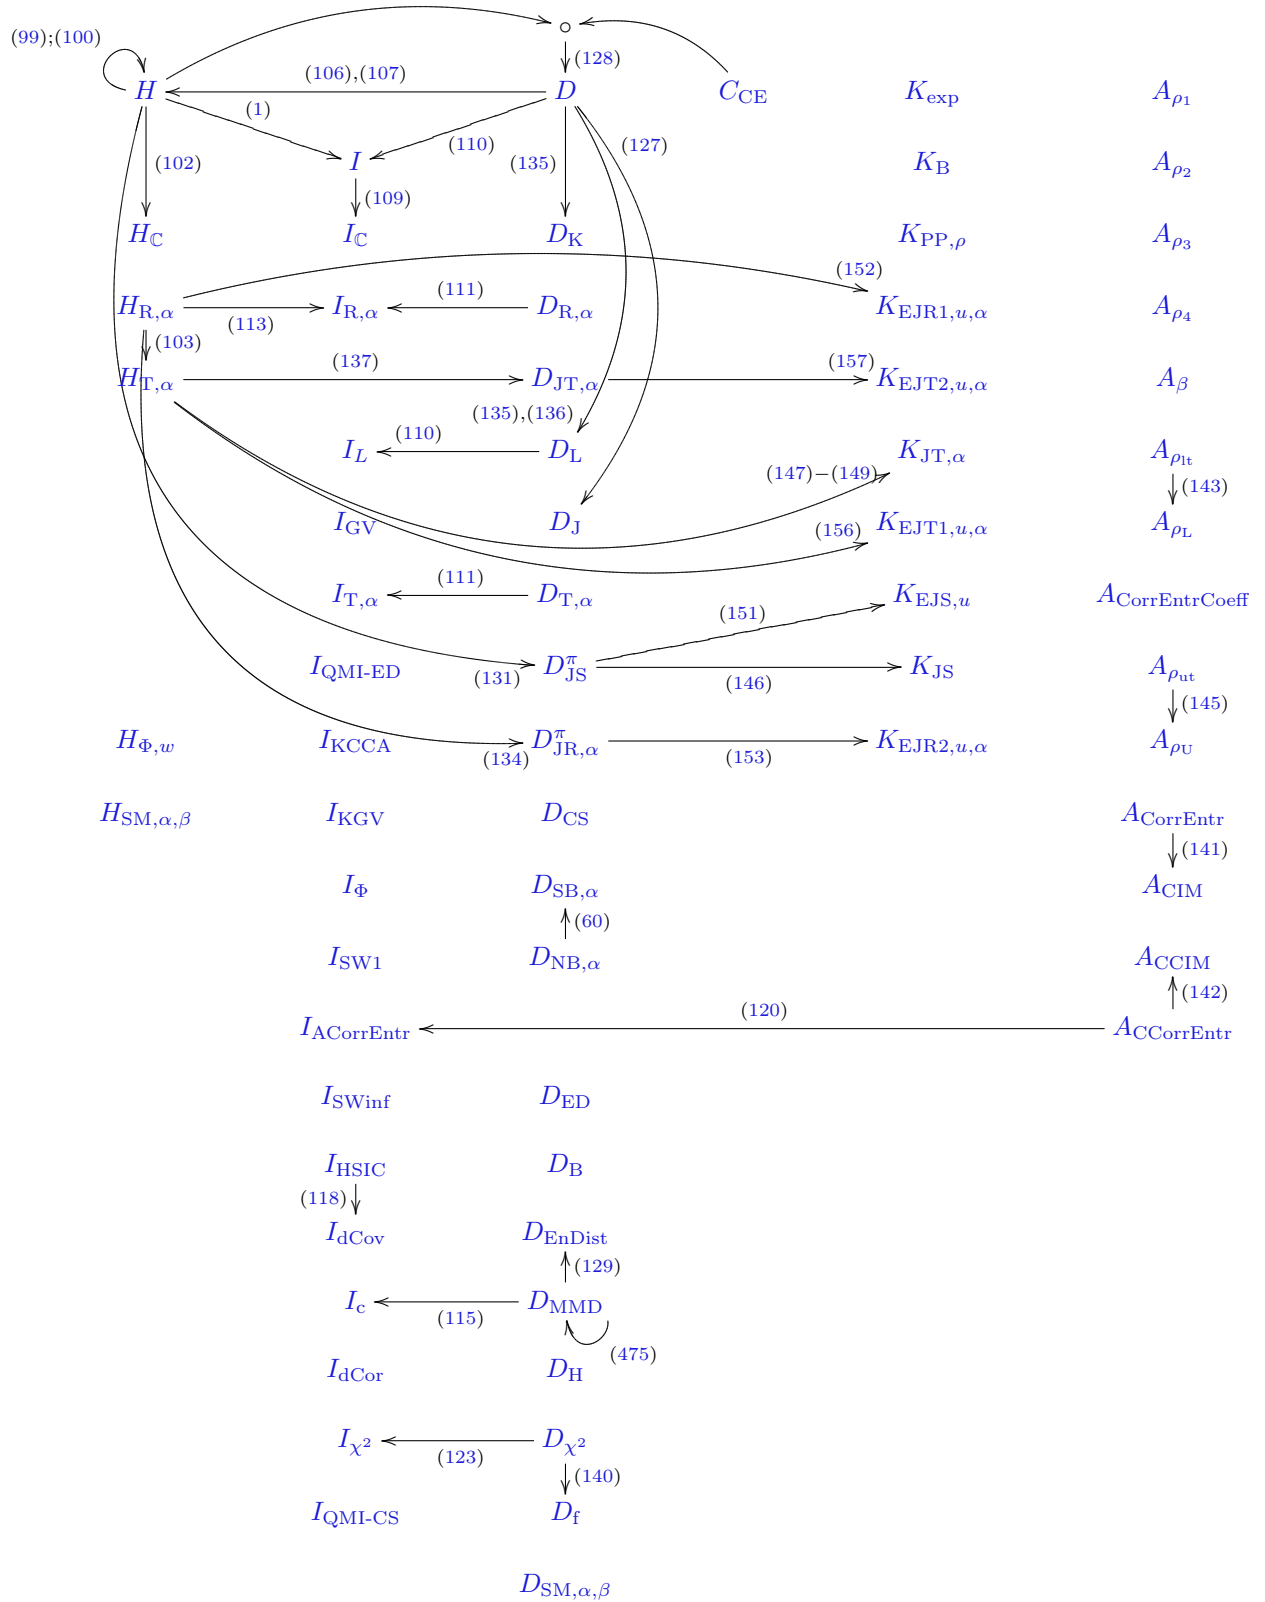 (99);(100)
(128)
(106),(107)
H D C_CE K_exp A_ρ1
(1)
(110)
(127)
(102) I (135) K_B A_ρ2
(109)
H_ℂ I_ℂ D_K K_PP,ρ A_ρ3
(152)
(111)
H_R,α I_R,α D_R,α K_EJR1,u,α A_ρ4
(113)
(103)
(137) (157)
H_T,α D_JT,α K_EJT2,u,α A_β
(135),(136)
(110)
I_L D_L K_JT,α A_ρlt
(147)−(149)
(143)
I_GV D_J K_EJT1,u,α A_ρL
(156)
(111)
I_T,α D_T,α K_EJS,u A_CorrEntrCoeff
(151)
I_QMI-ED D^π_JS K_JS A_ρut
(131) (146)
(145)
H_Φ,w I_KCCA D^π_JR,α K_EJR2,u,α A_ρU
(134) (153)
H_SM,α,β I_KGV D_CS A_CorrEntr
(141)
I_Φ D_SB,α A_CIM
(60)
I_SW1 D_NB,α A_CCIM
(142)
(120)
I_ACorrEntr A_CCorrEntr
I_SWinf D_ED
I_HSIC D_B
(118)
I_dCov D_EnDist
(129)
I_c D_MMD
(115)
(475)
I_dCor D_H
I_χ² D_χ²
(123)
(140)
I_QMI-CS D_f
D_SM,α,β